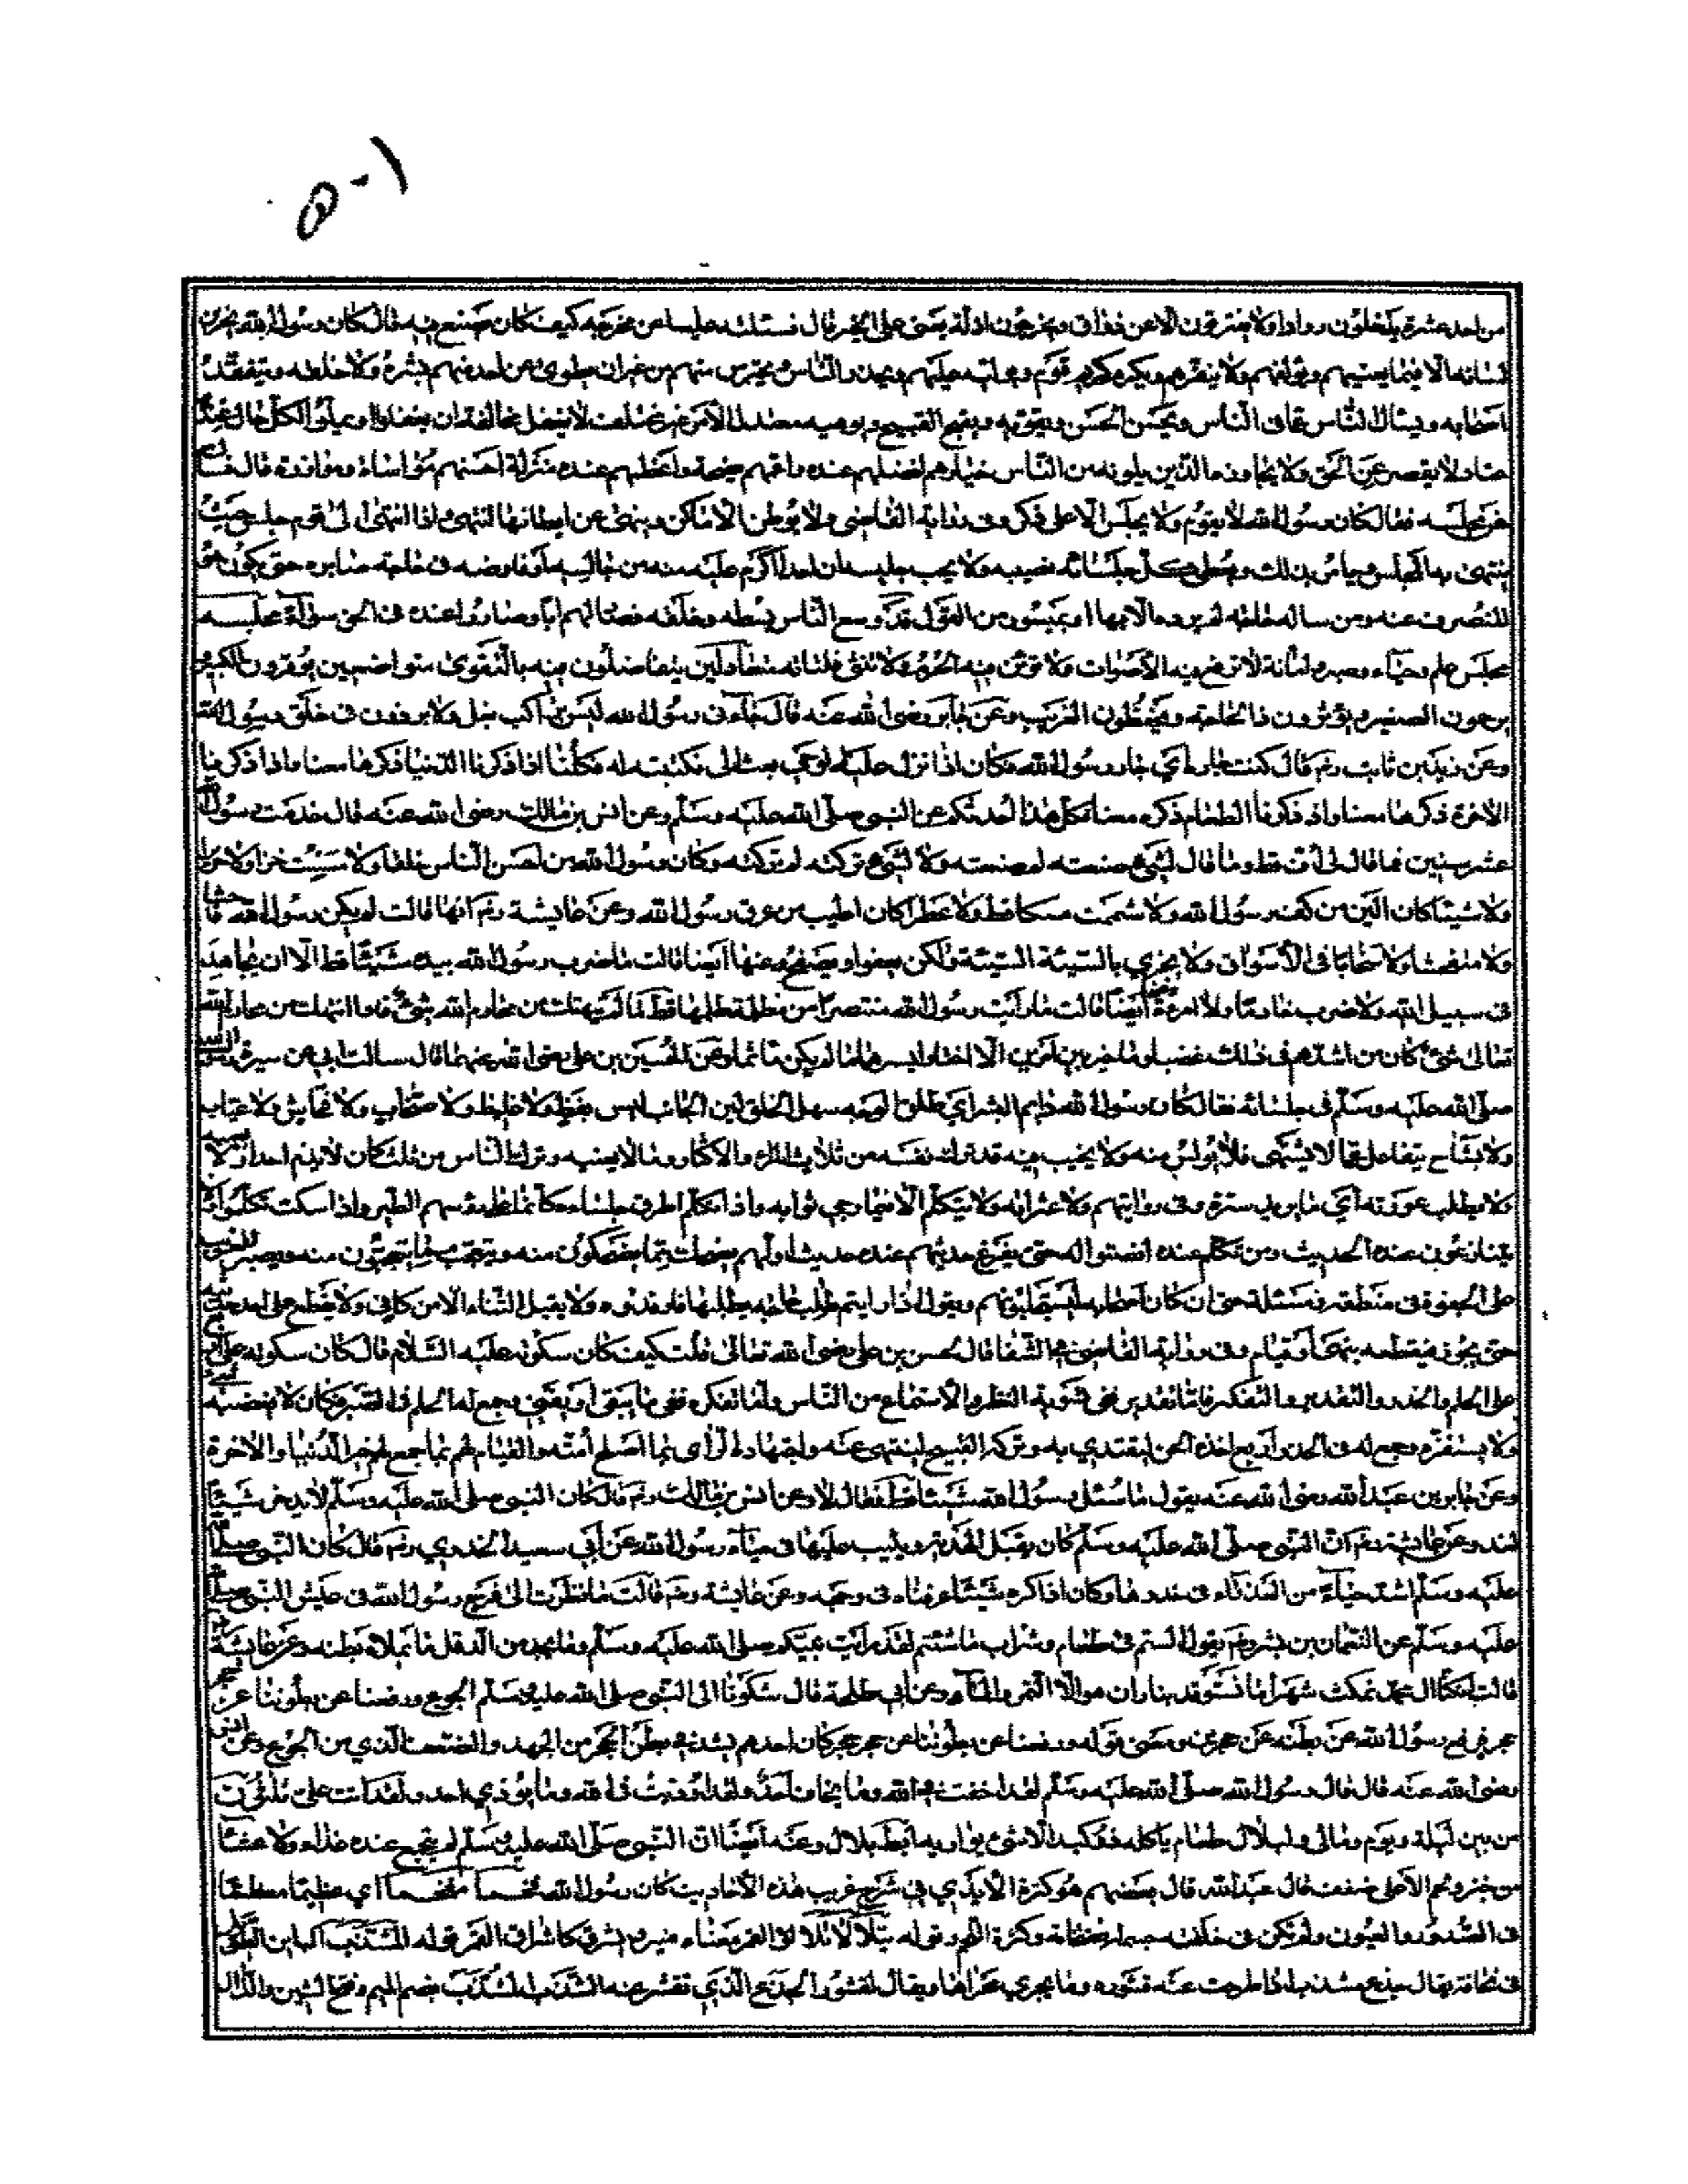 من احد عشرة يدخلون روادا ولا يفترقون الا عن ذواق ويخرجون ادلة يعنى على الخير قال فسئلته عن مخرجه كيف كان يصنع فيه قال كان رسول الله يخزن
لسانه الا فيما يعنيهم ويؤلفهم ولا ينفرهم ويكرم كريم قوم ويوليه عليهم ويحذر الناس ويحترس منهم من غير ان يطوى عن احد منهم بشره ولا خلقه ويتفقد
اصحابه ويسئال الناس عما فى الناس ويحسن الحسن ويقويه ويقبح القبيح ويوهيه معتدل الأمر غير مختلف لا يغفل مخافة ان يغفلوا او يميلوا لكل حال عنده
عتاد لا يقصر عن الحق ولا يجاوزه الذين يلونه من الناس خيارهم افضلهم عنده واعمهم نصيحة واعظمهم عنده منزلة احسنهم مؤاساة وموازرة قال
عن مجلسه فقال كان رسول الله لا يقوم ولا يجلس الا على ذكر وفى رواية القاضى ولا يوطن الأماكن وينهى عن ايطانها انتهى واذا انتهى الى قوم جلس حيث
ينتهى به المجلس ويامر بذلك ويعطى كل جلسائه نصيبه ولا يحسب جليسه ان احدا اكرم عليه منه من جالسه او فاوضه فى حاجة صابره حتى يكون هو
المنصرف عنه ومن ساله حاجة لم يرده الا بها او بميسور من القول قد وسع الناس بسطه وخلقه فصار لهم ابا وصاروا عنده فى الحق سواء مجلسه
مجلس علم وحياء وصبر وامانة لا ترفع فيه الأصوات ولا تؤبن فيه الحرم ولا تنثى فلتاته متعادلين يتفاضلون فيه بالتقوى متواضعين يوقرون الكبير
يرحمون الصغير ويؤثرون ذا الحاجة ويحفظون الغريب وعن جابر رضى الله عنه قال جاءنى رسول الله ليس براكب بغل ولا برذون فى خلق رسول الله
وعن زيد بن ثابت رضى قال كنت جاره اي جار رسول الله فكان اذا نزل عليه الوحى بعث الى فكتبته له فكنا اذا ذكرنا الدنيا ذكرها معنا واذا ذكرنا
الاخرة ذكرها معنا واذ ذكرنا الطعام ذكره معنا فكل هذا احدثكم عن النبى صلى الله عليه وسلم وعن انس بن مالك رضى الله عنه قال خدمت رسول الله
عشر سنين فما قال لى اف قط وما قال لشئ صنعته لم صنعته ولا لشئ تركته لم تركته وكان رسول الله من احسن الناس خلقا ولا مسست خزا ولا حريرا
ولا شيئا كان الين من كف رسول الله ولا شممت مسكا قط ولا عطرا كان اطيب من عرق رسول الله وعن عايشة رضى انها قالت لم يكن رسول الله فاحشا
ولا متفحشا ولا سخابا فى الأسواق ولا يجزي بالسيئة السيئة ولكن يعفوا ويصفح وعنها ايضا قالت ما ضرب رسول الله بيده شيئا قط الا ان يجاهد
فى سبيل الله ولا ضرب خادما ولا امرءة وعنها ايضا قالت ما رايت رسول الله منتصرا من مظلمة ظلمها قط ما لم ينتهك من محارم الله شئ فاذا انتهك من محارم الله
تعالى شئ كان من اشدهم فى ذلك غضبا وما خير بين امرين الا اختار ايسرهما ما لم يكن ماثما وعن الحسين بن على رضى الله عنهما قال سالت ابى عن سيرة رسول الله
صلى الله عليه وسلم فى جلسائه فقال كان رسول الله دايم البشر اي طلق الوجه سهل الخلق لين الجانب ليس بفظ ولا غليظ ولا سخاب ولا فحاش ولا عياب
ولا مشاح يتغافل عما لا يشتهى فلا يؤيس منه ولا يخيب فيه قد ترك نفسه من ثلاث المراء والاكثار وما لا يعنيه وترك الناس من ثلث كان لا يذم احدا ولا يعيبه
ولا يطلب عورته اي ما يريد ستره وفى رواية ولا عثراته ولا يتكلم الا فيما رجى ثوابه واذا تكلم اطرق جلساءه كانما على رؤسهم الطير واذا سكت تكلموا لا
يتنازعون عنده الحديث ومن تكلم عنده انصتوا له حتى يفرغ حديثهم عنده حديث اولهم يضحك مما يضحكون منه ويتعجب مما يتعجبون منه ويصبر للغريب
على الجفوة فى منطقه ومسئلته حتى ان كان اصحابه ليستجلبونهم ويقول اذا رايتم طالب حاجة يطلبها فارفدوه ولا يقبل الثناء الا من مكافى ولا يقطع على احد حديثه
حتى يجوز فيقطعه بنهى او قيام وفى رواية القاضى فى الشفا قال الحسن بن على رضى الله تعالى قلت كيف كان سكوته عليه السلام قال كان سكوته على اربع
على الحلم والحذر والتقدير والتفكر فاما تقديره ففى تسوية النظر والأستماع من الناس واما تفكره ففى ما يبقى او يفنى وجمع له الحلم فى الصبر فكان لا يغضبه شئ
ولا يستفزه وجمع له فى الحذر اربع اخذه الحسن ليقتدي به وتركه القبيح لينتهى عنه واجتهاد الرأى بما اصلح امته والقيام لهم بما جمع لهم خير الدنيا والاخرة
وعن جابر بن عبد الله رضى الله عنه يقول ما سئل رسول الله شيئا قط فقال لا وعن انس بن مالك رضى قال كان النبى صلى الله عليه وسلم لا يدخر شيئا
لغد وعن عايشة رضى ان النبى صلى الله عليه وسلم كان يقبل الهدية ويثيب عليها فى حياء رسول الله عن ابى سعيد الخدري رضى قال كان النبى صلى الله
عليه وسلم اشد حياء من العذراء فى خدرها وكان اذا كره شيئا عرفناه فى وجهه وعن عايشة رضى قالت ما نظرت الى فرج رسول الله فى عيش النبى صلى الله
عليه وسلم عن النعمان بن بشير رضى يقول الستم فى طعام وشراب ما شئتم لقد رايت نبيكم صلى الله عليه وسلم وما يجد من الدقل ما يملاء بطنه وعن عايشة
قالت كنا ال محمد نمكث شهرا ما نستوقد بنار ان هو الا التمر والماء وعن ابى طلحة قال شكونا الى النبى صلى الله عليه وسلم الجوع ورفعنا عن بطوننا عن حجر
حجر فرفع رسول الله عن بطنه عن حجرين ومعنى قوله ورفعنا عن بطوننا عن حجر حجر كان احدهم يشد فى بطنه الحجر من الجهد والضعف الذي من الجوع وعن انس
رضى الله عنه قال قال رسول الله صلى الله عليه وسلم لقد اخفت فى الله وما يخاف احد ولقد اوذيت فى الله وما يؤذي احد ولقد اتت على ثلثون
من بين ليلة ويوم ومالى ولبلال طعام ياكله ذو كبد الا شئ يواريه ابط بلال وعنه ايضا ان النبى صلى الله عليه وسلم لم يجتمع عنده غداء ولا عشاء
من خبز ولحم الا على ضفف قال عبد الله قال بعضهم هو كثرة الأيدي فى شرح غريب هذه الأحاديث كان رسول الله فخما مفخما اي عظيما معظما
فى الصدور والعيون ولم تكن فى خلقته جسمه ضخامة وكثرة اللحم وقوله يتلألأ تلألؤ القمر معناه ينير ويشرق كاشراق القمر قوله المشذب الباين الطول
فى نحافة يقال جذع مشذب اذا طرحت عنه قشوره وما يجري مجراها ويقال لقشور الجذع الذي تقشر عنه الشذب المشذب بضم الميم وفتح الشين والذال